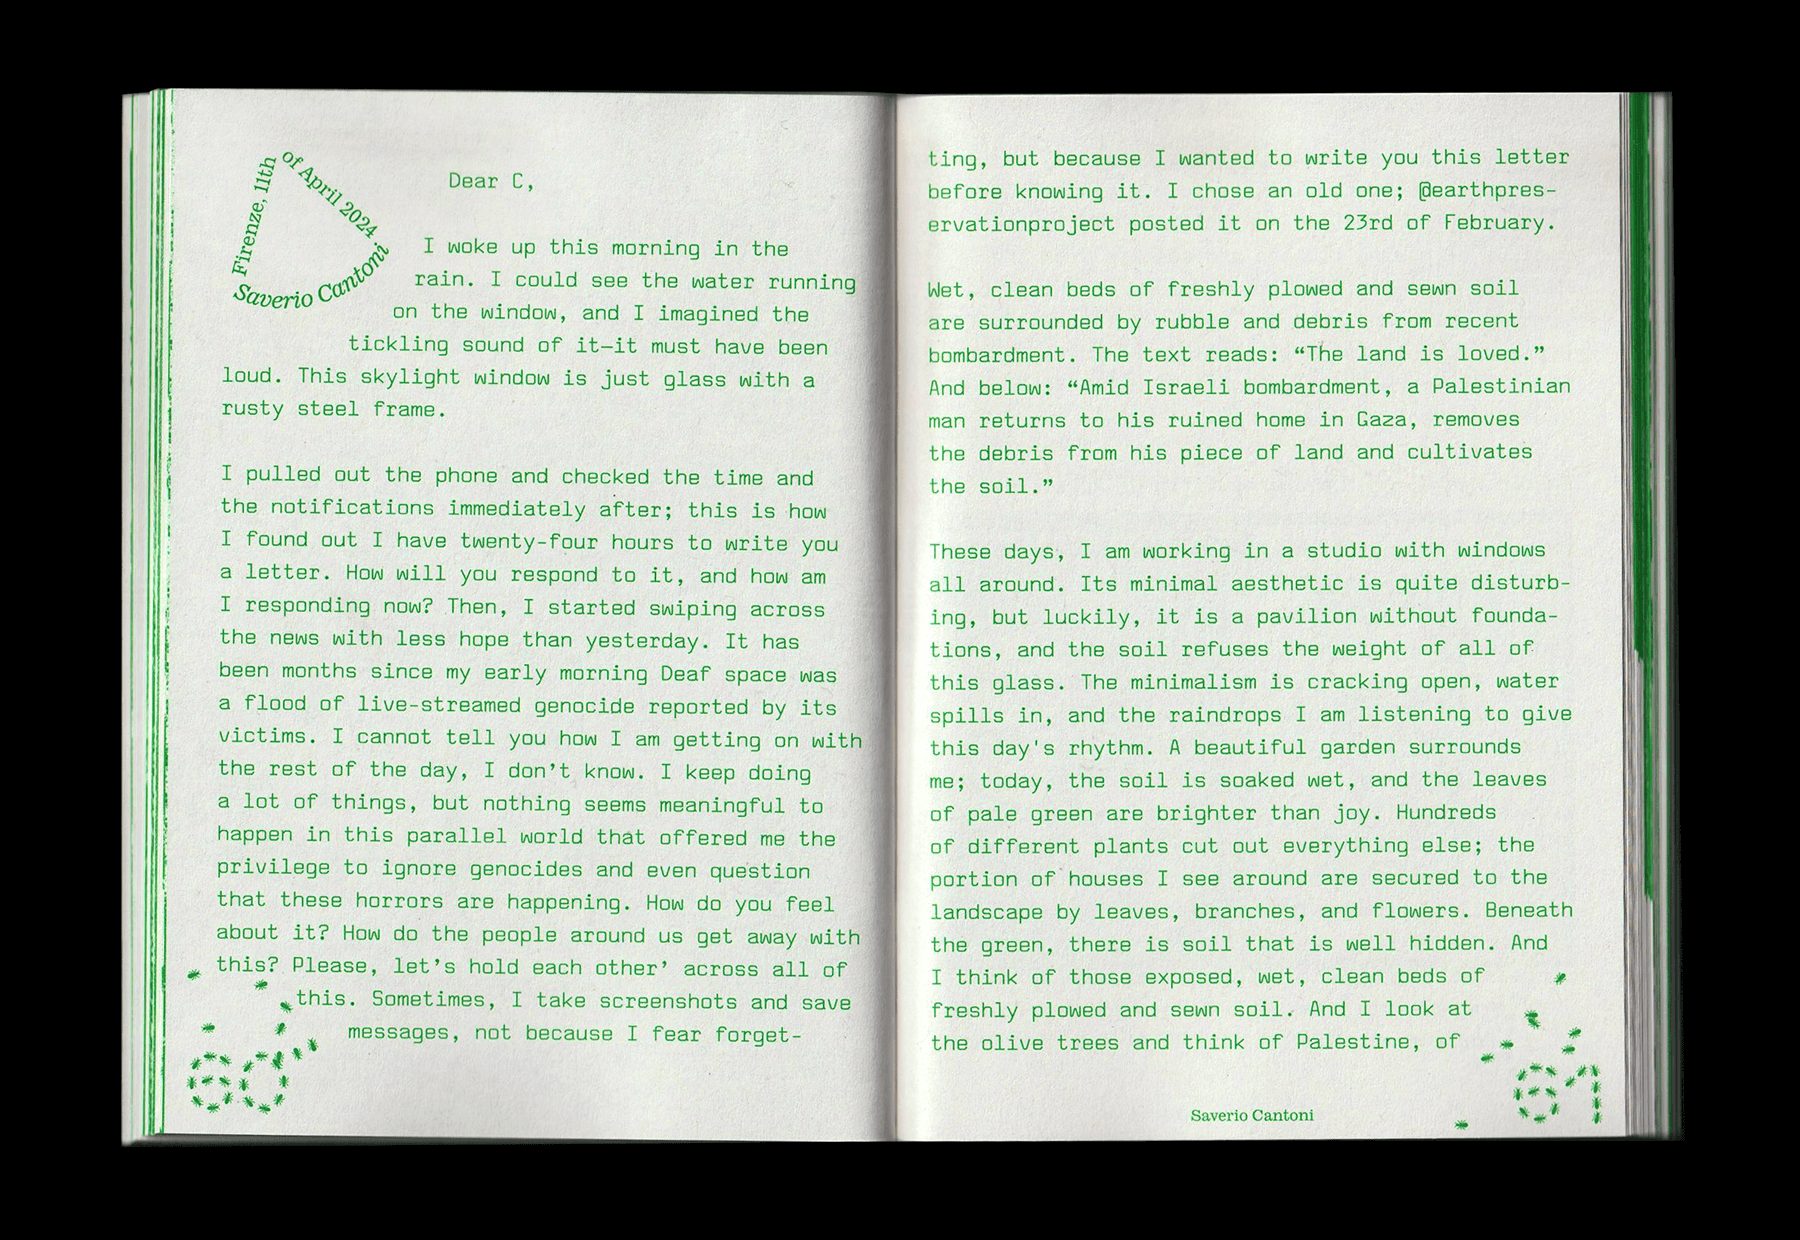 Firenze, 11th
of April 2024 ·
Saverio Cantoni
Dear C,
I woke up this morning in the
rain. I could see the water running
on the window, and I imagined the
tickling sound of it—it must have been
loud. This skylight window is just glass with a
rusty steel frame.
I pulled out the phone and checked the time and
the notifications immediately after; this is how
I found out I have twenty-four hours to write you
a letter. How will you respond to it, and how am
I responding now? Then, I started swiping across
the news with less hope than yesterday. It has
been months since my early morning Deaf space was
a flood of live-streamed genocide reported by its
victims. I cannot tell you how I am getting on with
the rest of the day, I don’t know. I keep doing
a lot of things, but nothing seems meaningful to
happen in this parallel world that offered me the
privilege to ignore genocides and even question
that these horrors are happening. How do you feel
about it? How do the people around us get away with
this? Please, let’s hold each other’ across all of
this. Sometimes, I take screenshots and save
messages, not because I fear forget-
60
ting, but because I wanted to write you this letter
before knowing it. I chose an old one; @earthpres-
ervationproject posted it on the 23rd of February.
Wet, clean beds of freshly plowed and sewn soil
are surrounded by rubble and debris from recent
bombardment. The text reads: “The land is loved.”
And below: “Amid Israeli bombardment, a Palestinian
man returns to his ruined home in Gaza, removes
the debris from his piece of land and cultivates
the soil.”
These days, I am working in a studio with windows
all around. Its minimal aesthetic is quite disturb-
ing, but luckily, it is a pavilion without founda-
tions, and the soil refuses the weight of all of
this glass. The minimalism is cracking open, water
spills in, and the raindrops I am listening to give
this day's rhythm. A beautiful garden surrounds
me; today, the soil is soaked wet, and the leaves
of pale green are brighter than joy. Hundreds
of different plants cut out everything else; the
portion of houses I see around are secured to the
landscape by leaves, branches, and flowers. Beneath
the green, there is soil that is well hidden. And
I think of those exposed, wet, clean beds of
freshly plowed and sewn soil. And I look at
the olive trees and think of Palestine, of
Saverio Cantoni
61